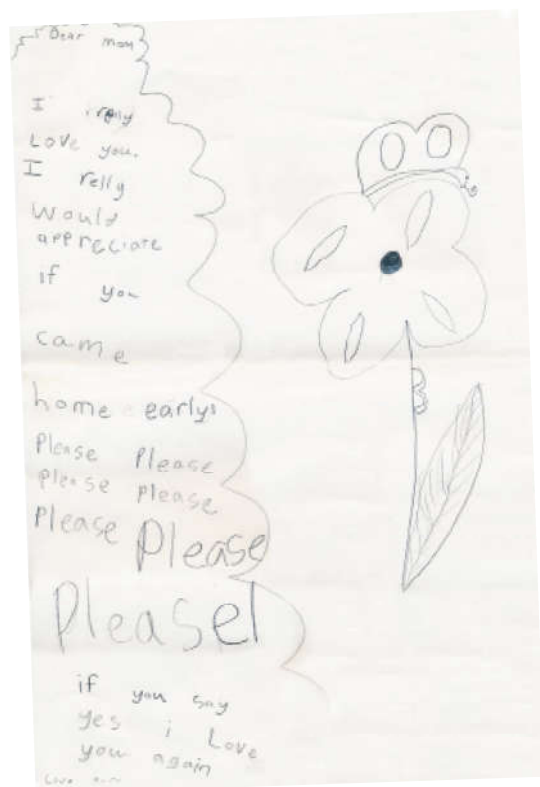 Dear mom
I relly
Love you.
I relly
Would
appreciate
if you
came
home early!
Please Please
please please
Please Please
Please!
if you say
yes i Love
you again
Love